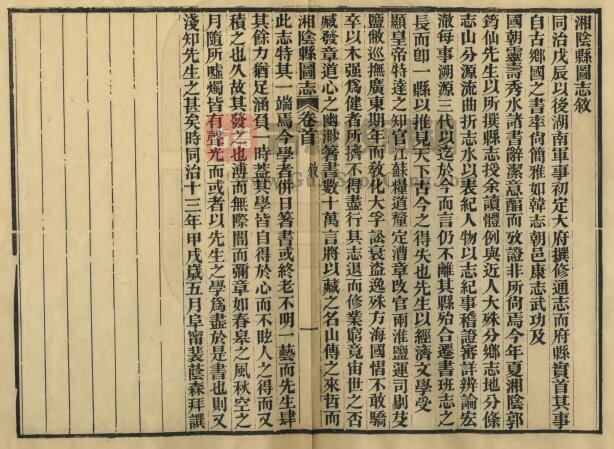 湘陰縣圖志敘
同治戊辰以後湖南軍事初定大府撰修通志而府縣實首其事
自古郷國之書率尙簡雅如韓志朝邑康志武功及
國朝靈壽秀水諸書辭潔意醕而攷證非所尙焉今年夏湘陰郭
筠仙先生以所撰縣志授余讀體例與近人大殊分鄕志地分條
志山分源流曲折志水以表紀人物以志紀事稽證審詳辨論宏
澈每事溯源三代以迄於今而言仍不離其縣殆合遷書班志之
長而卽一縣以推見天下古今之得失也先生以經濟文學受
顯皇帝特達之知官江蘇糧道釐定漕章改官兩淮鹽運司剔芟
鹽敝巡撫廣東期年而敎化大孚訟衰盜逸殊方海國慴不敢驕
卒以木强爲健者所擠不得盡行其志退而修業窮竟宙世之否
臧發章道心之幽渺箸書數十萬言將以藏之名山傳之來哲而
湘陰縣圖志 卷首 敘 一
此志特其一端焉今學者併日箸書或終老不明一藝而先生肆
其餘力猶足涵負一時蓋其學皆自得於心而不眩人之得而又
積之也久故其發之也溥而無際闇而彌章如春皋之風秋空之
月隨所噓燭皆有聲光而或者以先生之學爲盡於是書也則又
淺知先生之甚矣時同治十三年甲戌歲五月阜甯裴蔭森拜譔